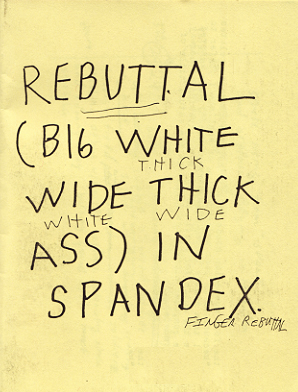 REBUTTAL
(BIG WHITE
THICK
WIDE THICK
WHITE WIDE
ASS) IN
SPANDEX.
FINGER REBUTTAL